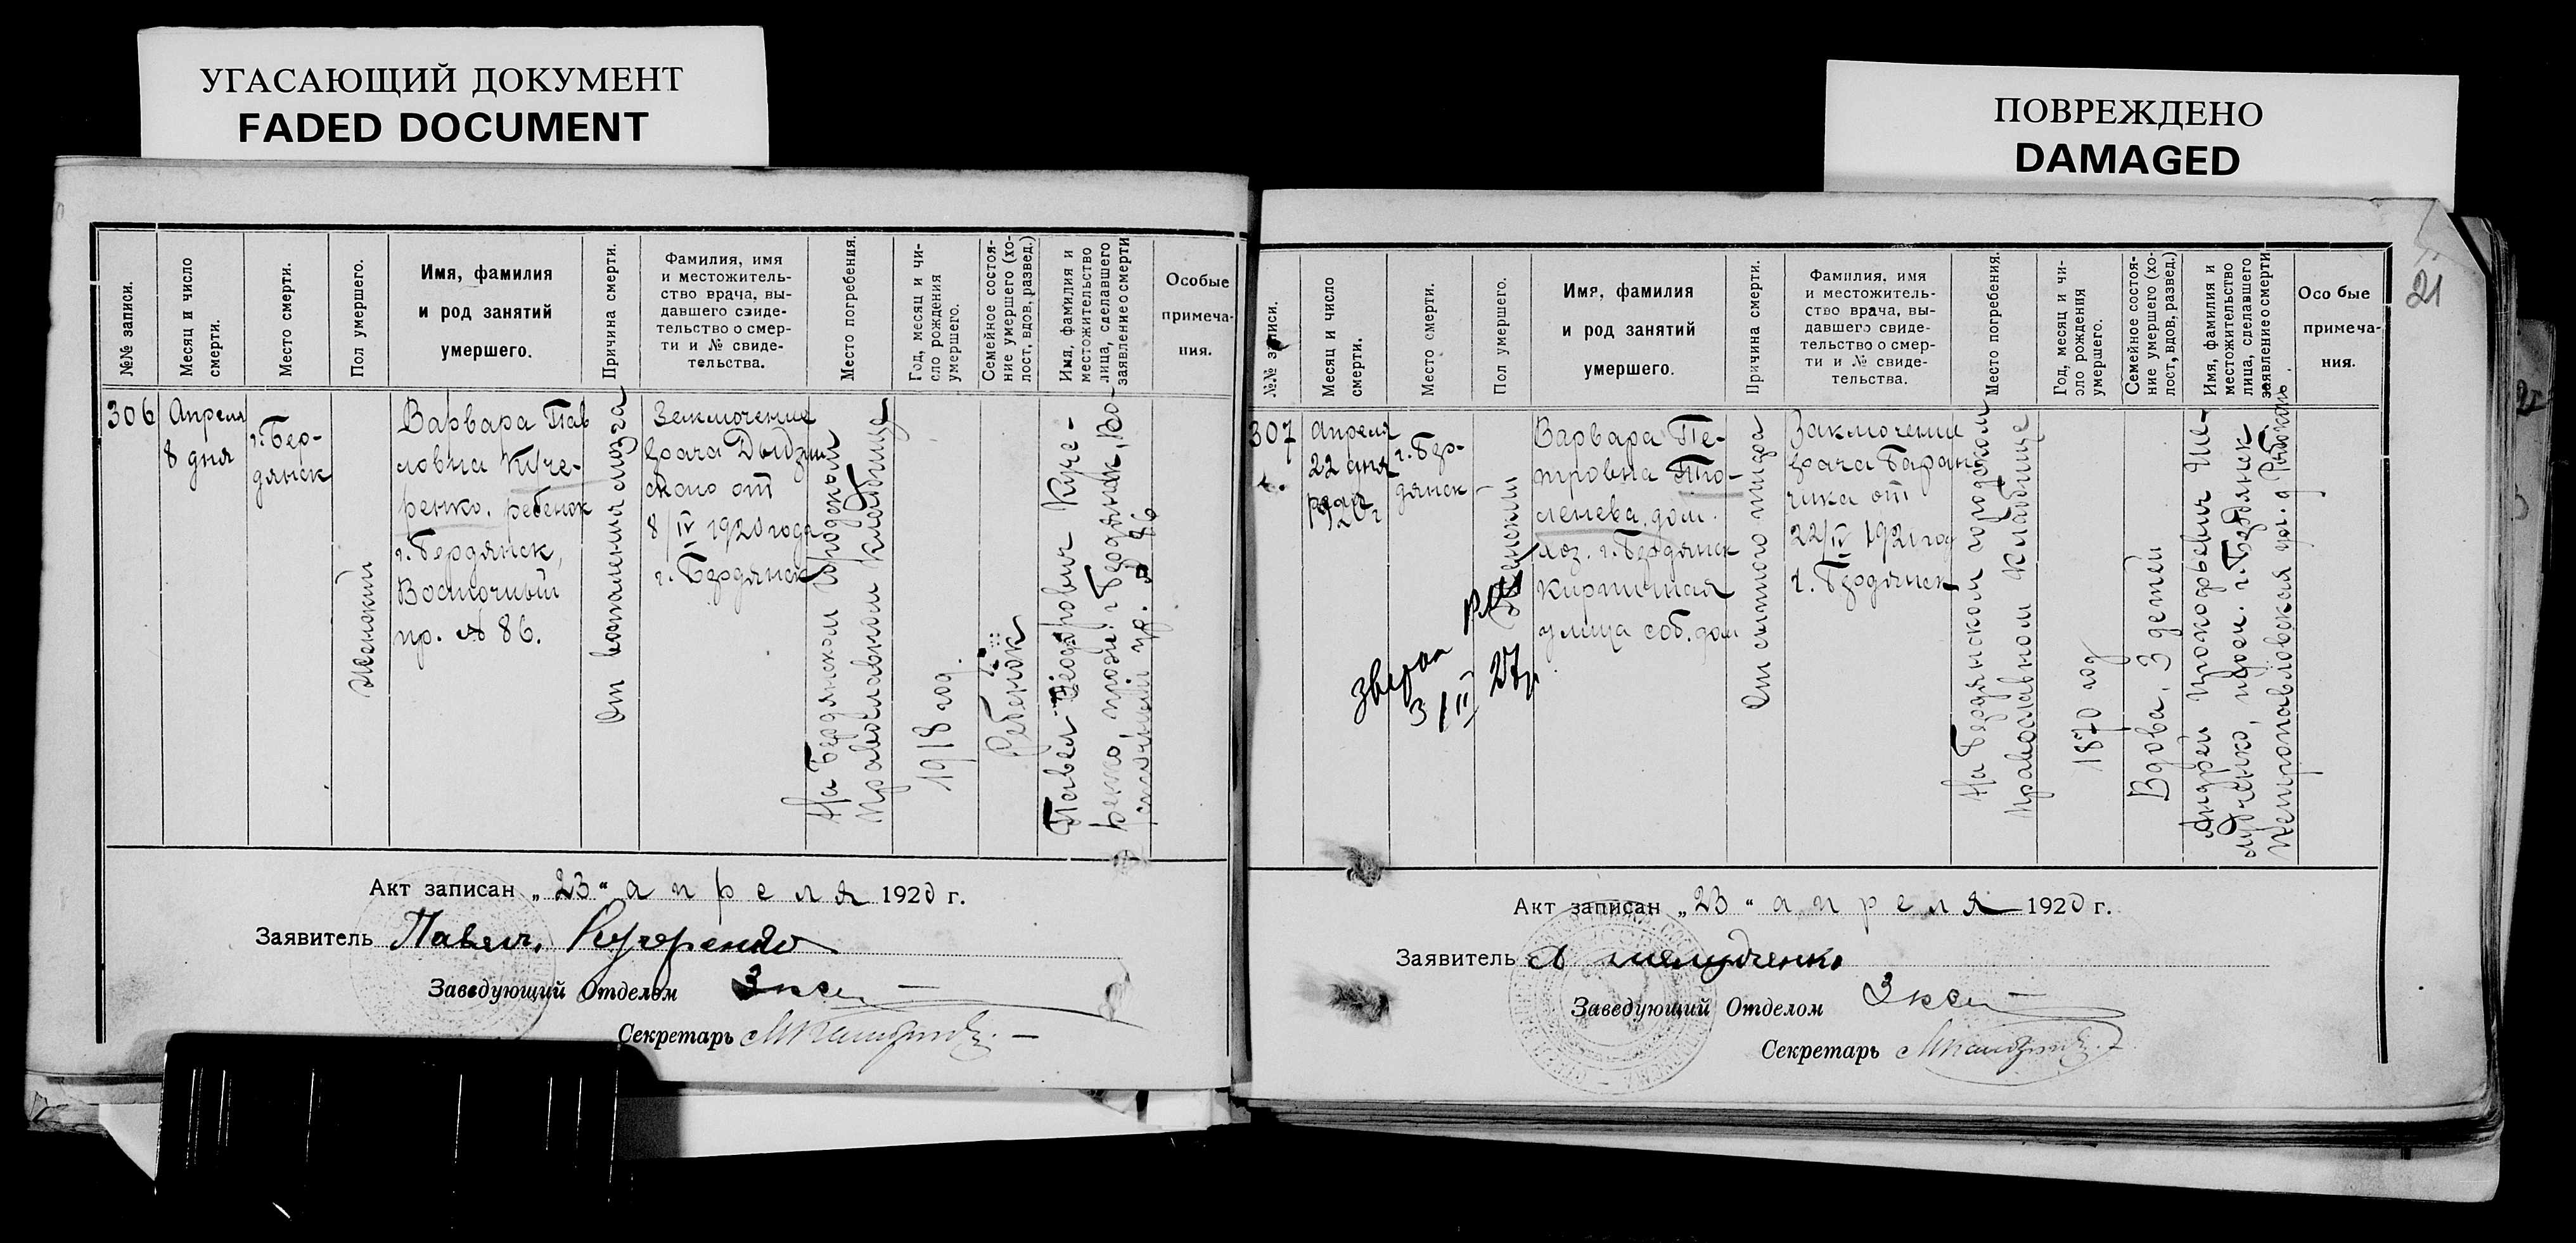 УГАСАЮЩИЙ ДОКУМЕНТ
FADED DOCUMENT
ПОВРЕЖДЕНО
DAMAGED
№№ записи.
Месяц и число
смерти.
Место смерти.
Пол умершего.
Имя, фамилия
и род занятий
умершего.
Причина смерти.
Фамилия, имя
и местожитель-
ство врача, вы-
давшего свиде-
тельство о смер-
ти и № свиде-
тельства.
Место погребения.
Год, месяц и чи-
сло рождения
умершего.
Семейное состоя-
ние умершего (хо-
лост, вдов, развед.)
Имя, фамилия и
местожительство
лица, сделавшего
заявление о смерти
Особые
примеча-
ния.
306
Апреля
8 дня
г. Бер-
дянск
Женский
Варвара Пав
ловна Куче-
ренко, ребенок
г. Бердянск,
Восточный
пр. № 86.
От воспаления мозга
Заключение
врача
ского от
8/IV 1920 года
г. Бердянск
На Бердянском городском
православном кладбище
1918 год.
Ребенок
Павел Федорович Куче-
ренко, прож. г. Бердянск, Во-
сточный пр. № 86
Акт записан „23“ апреля 1920 г.
Заявитель Павел Кучеренко
Заведующий Отделом
Секретарь
21
№№ записи.
Месяц и число
смерти.
Место смерти.
Пол умершего.
Имя, фамилия
и род занятий
умершего.
Причина смерти.
Фамилия, имя
и местожитель-
ство врача, вы-
давшего свиде-
тельство о смер-
ти и № свиде-
тельства.
Место погребения.
Год, месяц и чи-
сло рождения
умершего.
Семейное состоя-
ние умершего (хо-
лост, вдов, развед.)
Имя, фамилия и
местожительство
лица, сделавшего
заявление о смерти
Особые
примеча-
ния.
307
Апреля
22 дня
1920 г
г. Бер-
дянск
Женский
Варвара Пе-
тровна То-
ленева, дом.
хоз. г. Бердянск
Кирпичная
улица соб. дом
От сыпного тифа
Заключение
врача Таран
чика от
22/IV 1920 год
г. Бердянск
На Бердянском городском
православном кладбище
1870 год
Вдова, 3 детей
Андрей Прокофьевич Ше-
лудченко, прож. г. Бердянск
Петропавловская ул.
3/II 27г.
Акт записан „23“ апреля 1920 г.
Заявитель А Шелудченко
Заведующий Отделом
Секретарь